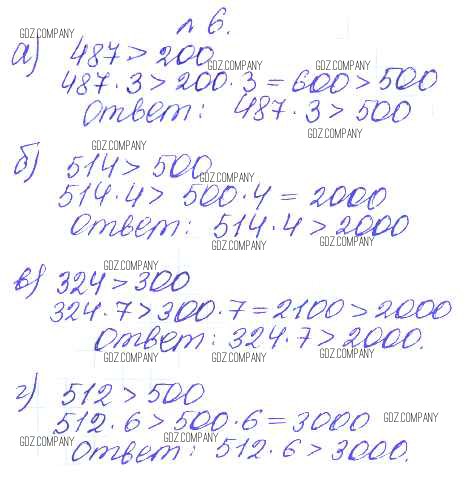 № 6.
GDZ.COMPANY
а) 487 > 200
GDZ.COMPANY GDZ.COMPANY
487 · 3 > 200 · 3 = 600 > 500
Ответ: 487 · 3 > 500
GDZ.COMPANY
GDZ.COMPANY
б) 514 > 500
GDZ.COMPANY
514 · 4 > 500 · 4 = 2000
Ответ: 514 · 4 > 2000
GDZ.COMPANY GDZ.COMPANY
GDZ.COMPANY
в) 324 > 300
324 · 7 > 300 · 7 = 2100 > 2000
Ответ: 324 · 7 > 2000.
GDZ.COMPANY GDZ.COMPANY GDZ.COMPANY
г) 512 > 500
512 · 6 > 500 · 6 = 3000 GDZ.COMPANY
GDZ.COMPANY GDZ.COMPANY
Ответ: 512 · 6 > 3000.